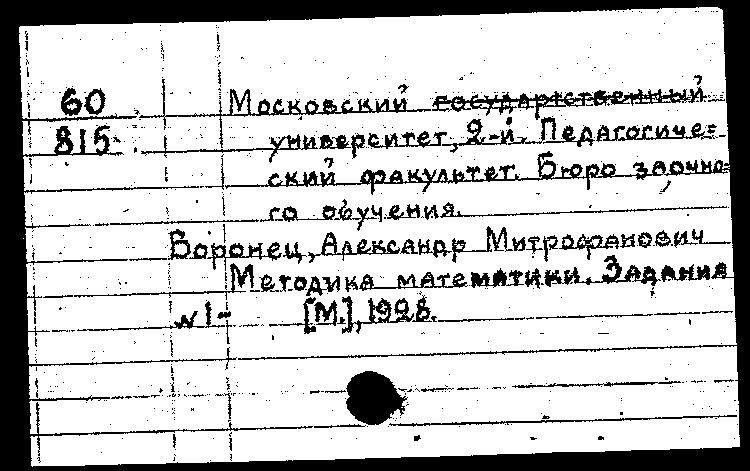 60 Московский государственный
815 университет, 2-й. Педагогиче=
ский факультет. Бюро заочно=
го обучения.
Воронец, Александр Митрофанович
Методика математики. Задания
№1- [М.], 1928.